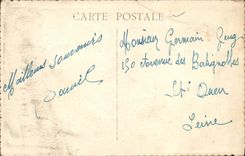 CARTE POSTALE
Meilleurs souvenirs
Daniel
Monsieur Germain
150 Avenue des Batignolles
St Ouen
Seine